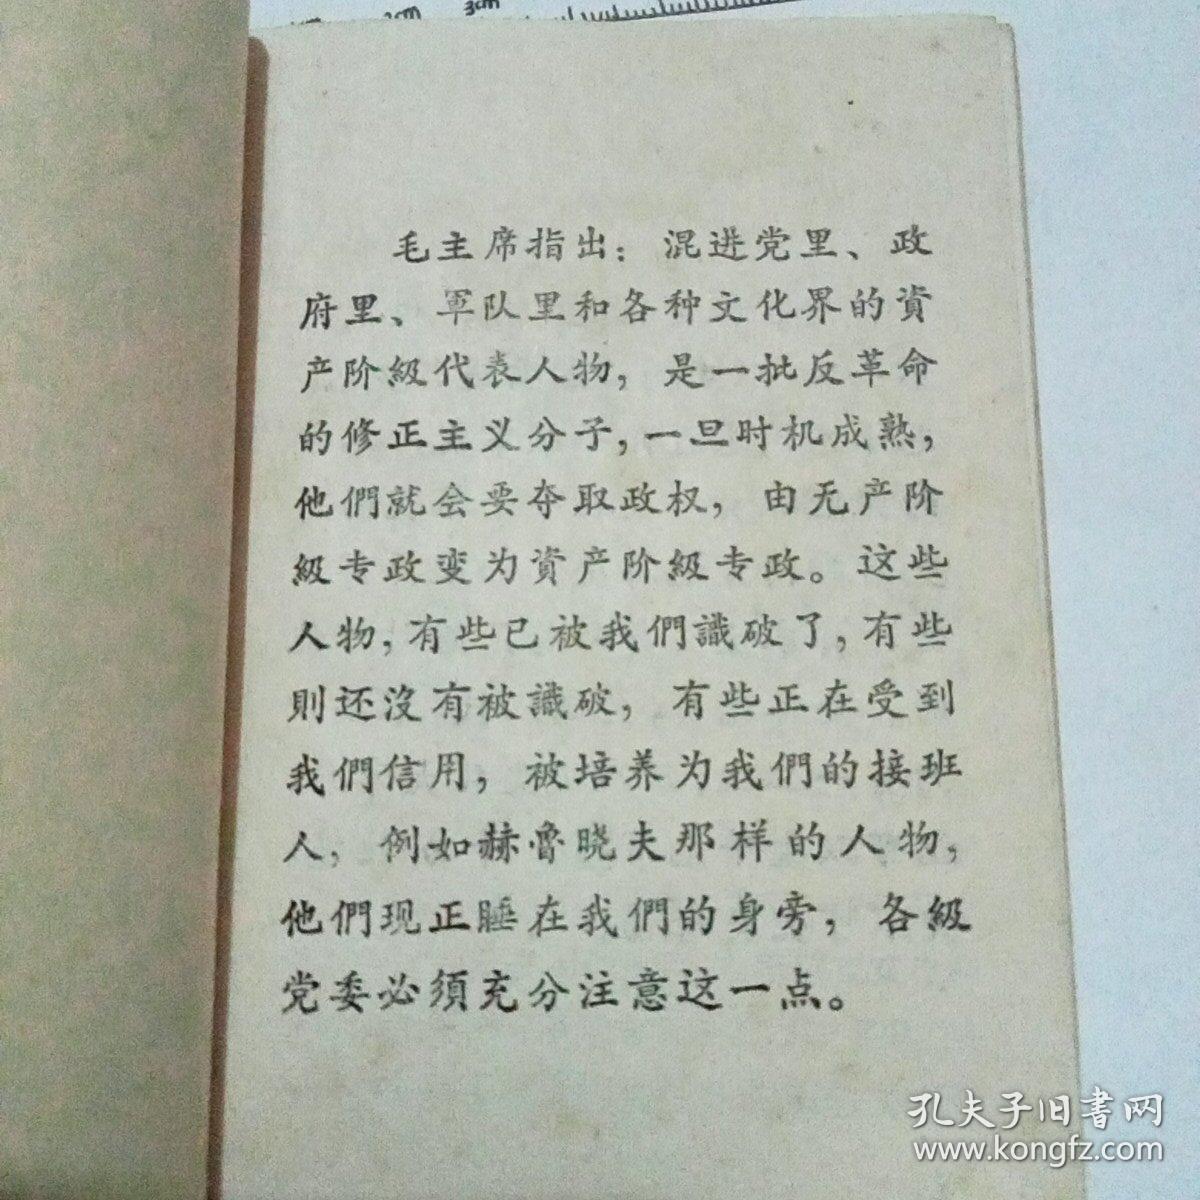 2cm 3cm
毛主席指出：混进党里、政
府里、軍队里和各种文化界的資
产阶級代表人物，是一批反革命
的修正主义分子，一旦时机成熟，
他們就会要夺取政权，由无产阶
級专政变为資产阶級专政。这些
人物，有些已被我們識破了，有些
則还没有被識破，有些正在受到
我們信用，被培养为我們的接班
人，例如赫魯晓夫那样的人物，
他們现正睡在我們的身旁，各級
党委必須充分注意这一点。
孔夫子旧書网
www.kongfz.com